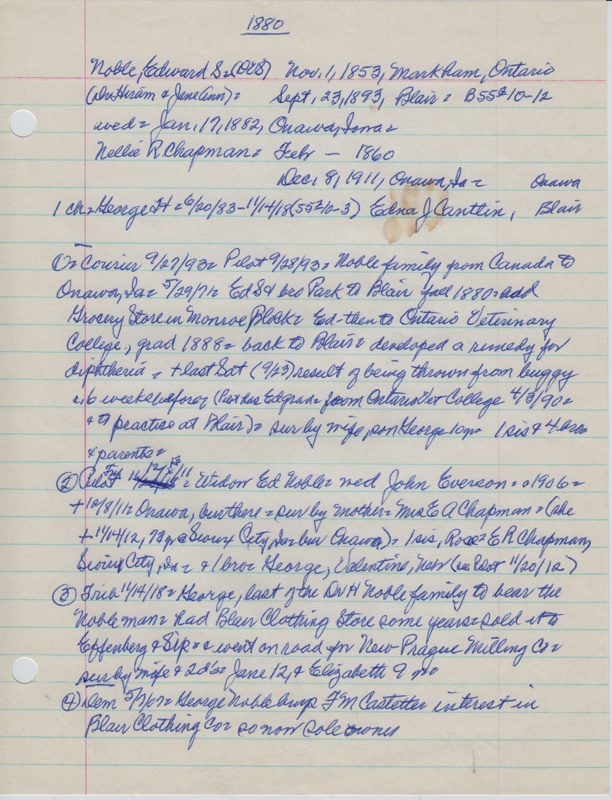 1880
Noble, Edward S. (DVS) Nov. 1, 1853, Markham, Ontario
(Dr. Hiram & Jane (Ann) = Sept. 23, 1893, Blair = B 55 2 10-12
wed = Jan. 17, 1882, Onawa, Iowa =
Nellie R Chapman = Febr — 1860
Dec. 8, 1911, Onawa, Ia = Onawa
1 ch = George H = 6/20/83 - 11/14/18 (55 2 10-3) Edna J Cantlin, Blair
① = Courier 9/27/93 = Pilot 9/28/93 = Noble family from Canada to
Onawa, Ia = 5/29/71 = Ed S & bro Park to Blair Fall 1880 =
Grocery Store in Monroe Block = Ed - then to Ontario Veterinary
College, grad 1888 = back to Blair = developed a remedy for
diphtheria = + last Sat (9/23) result of being thrown from buggy
6 weeks before (Ed grad = from Ontario Vet College 4/3/90 =
& to practice at Blair) = sur by wife, son George 10 yr = 1 sis & 4 bros
& parents =
② Pilot = Widow Ed Noble = wed John Everson = 1906 =
+ 12/8/11 = Onawa, bur there = sur by mother = Mrs E A Chapman = (she
+ 11/14/12, 73 y, @ Sioux City, Ia = bur Onawa) = 1 sis, Rose = E R Chapman,
Sioux City, Ia = & 1 bro = George, Valentine, Nebr (see Pilot 11/20/12)
③ Trib 11/14/18 = George, last of the Dr H Noble family to bear the
Noble man = had Blair Clothing Store some years = sold it to
Effenberg & Sip = & went on road for New Prague Milling Co =
sur by wife & 2 d's = Jane 12, & Elizabeth 9 mo
④ Dem 5/7/07 = George Noble buys F M Castetter interest in
Blair Clothing Co = so now sole owner